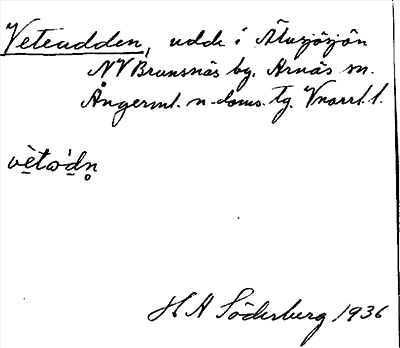 Veteudden, udde i Älusjösjön
NV Brunsnäs by. Arnäs sn.
Ångerml. n. doms. tg. Vnorrl. l.
vètὼdn̥
H A Söderberg 1936